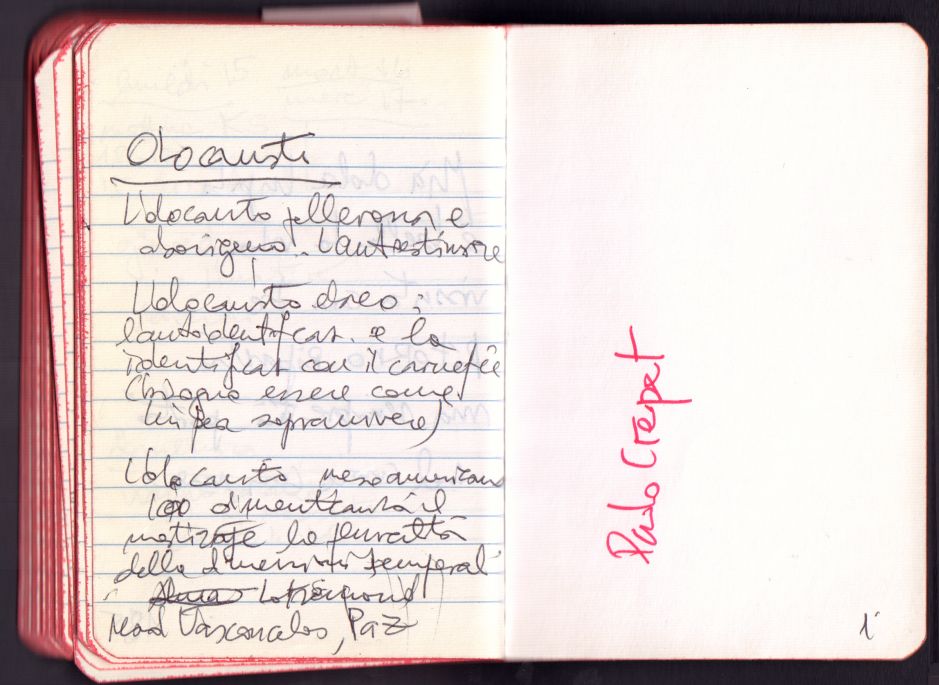 Olocausti
L'olocausto pellerossa e
aborigeno: l'autoestinzione
L'olocausto ebreo:
l'autoidentificaz. e la
identificaz con il carnefice
(bisogna essere come
lui per sopravvivere)
L'olocausto mesoamericano
la dimenticanza il
mestizaje la pluralità
delle dimensioni temporali
Vasconcelos, Paz
Paolo Crepet
1